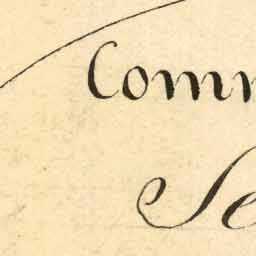 Comm
Se